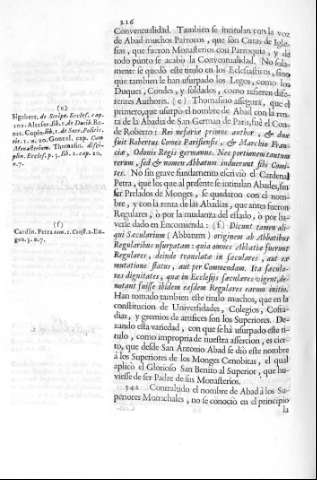 216
Conventualidad. Tambien se intitulan con la voz
de Abad muchos Parrocos, que son Curas de Igle-
sias, que fueron Monasterios con Parroquia, y de
todo punto se acabò la Conventualidad. No sola-
mente se quedò este titulo en los Eclesiasticos, sino
que tambien le han usurpado los Legos, como los
Duques, Condes, y soldados, como refieren dife-
rentes Authores. (e) Thomasino assegura, que el
primero, que usurpò el nombre de Abad con la ren-
ta de la Abadia de San German de Paris, fuè el Con-
de Roberto: Rei nefariæ primus author, & dux
fuit Robertus Comes Parisiensis, & Marchio Fran-
ciæ, Odonis Regis germanus. Nec pertinens tantum
rerum, sed & nomen Abbatum induerunt isti Comi-
tes. No sin grave fundamento escriviò el Cardenal
Petra, que los que al presente se intitulan Abades, sin
ser Prelados de Monges, se quedaron con el nom-
bre, y con la renta de las Abadias, que antes fueron
Regulares, ò por la mudanza del estado, ò por ha-
verse dado en Encomienda: (f) Dicunt tamen ali-
qui Sæculares (Abbatum) originem ab Abbatibus
Regularibus usurpatam: quia omnes Abbatiæ fuerint
Regulares, deinde translatæ in sæculares, aut ex
mutatione status, aut per Commendam. Ita sæcula-
res dignitates, quæ in Ecclesijs sæculares vigent, de-
notant fuisse ibidem easdem Regulares earum initio.
Han tomado tambien este titulo muchos, que en la
constitucion de Universidades, Colegios, Cofra-
dias, y gremios de artifices son los Superiores. De-
xando esta variedad, con que se hà usurpado este ti-
tulo, como impropria de nuestra assercion, es cier-
to, que desde San Antonio Abad se diò este nombre
à los Superiores de los Monges Cenobitas, el qual
aplicò el Glorioso San Benito al Superior, que hu-
viesse de ser Padre de sus Monasterios.
342 Contrahido el nombre de Abad à los Su-
periores Monachales, no se conociò en el principio
la
(e)
(f)
Cardin. Petra tom. 1.
n. 7.